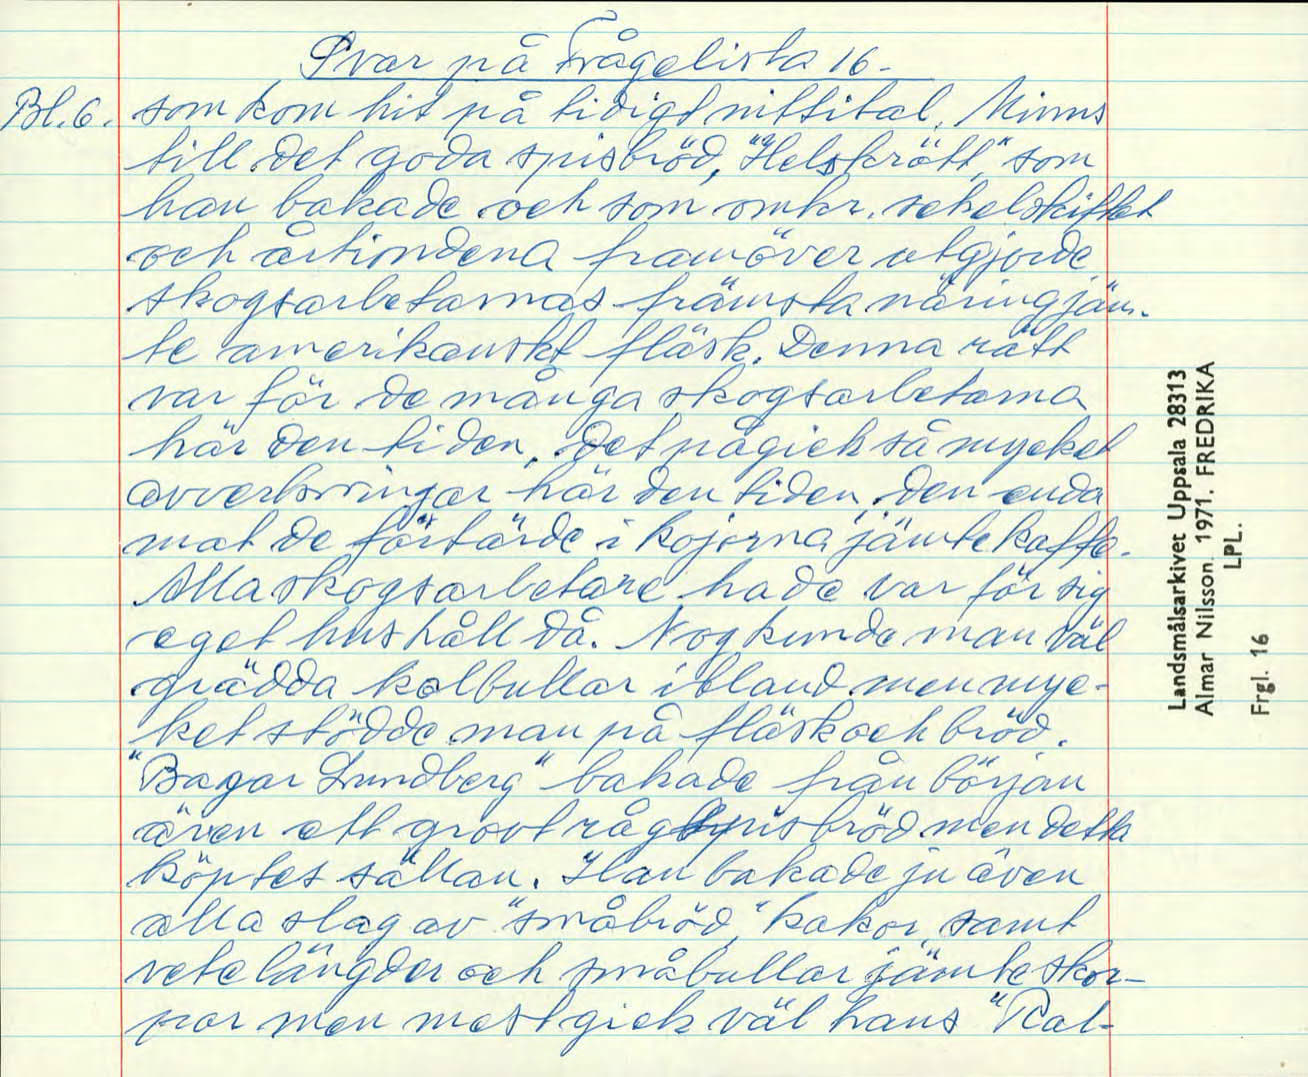 Svar på Frågelista 16-
Bl. 6. som kom hit på tidigt nittital. Minns
till det goda spisbröd, "Helskrått," som
han bakade och som omkr. sekelskiftet
och årtiondena framöver utgjorde
skogsarbetarnas främsta näring jäm-
te amerikanskt fläsk. Denna rätt
var för de många skogsarbetarna
här den tiden, det pågick så mycket
avverkningar här den tiden, den enda
mat de förtärde i kojorna jämte kaffe.
Alla skogsarbetare hade var för sig
eget hushåll då. Nog kunde man väl
grädda kolbullar ibland men myc-
ket stödde man på fläsk och bröd.
"Bagar Lundberg" bakade från början
även ett grovt råg spisbröd men detta
köptes sällan. Han bakade ju även
alla slag av "småbröd," kakor samt
vetelängder och småbullar jämte skor-
por men mest gick väl hans "Ral-
Landsmålsarkivet Uppsala 28313
Almar Nilsson. 1971. FREDRIKA
LPL.
Frgl. 16